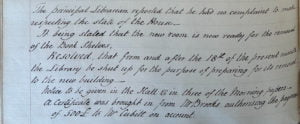 The principal Librarian reported that he had no complaint to make
respecting the state of the House.
It being stated that the new room is now ready for the removal
of the Book Shelves.
Resolved, that from and after the 18th of the present month
the Library be shut up for the purpose of preparing for its removal
to the new building.
Notice to be given in the Hall & in three of the Morning papers.
A Certificate was brought in from Mr Brooks authorising the payment
of 500£ to Mr Cubitt on account.